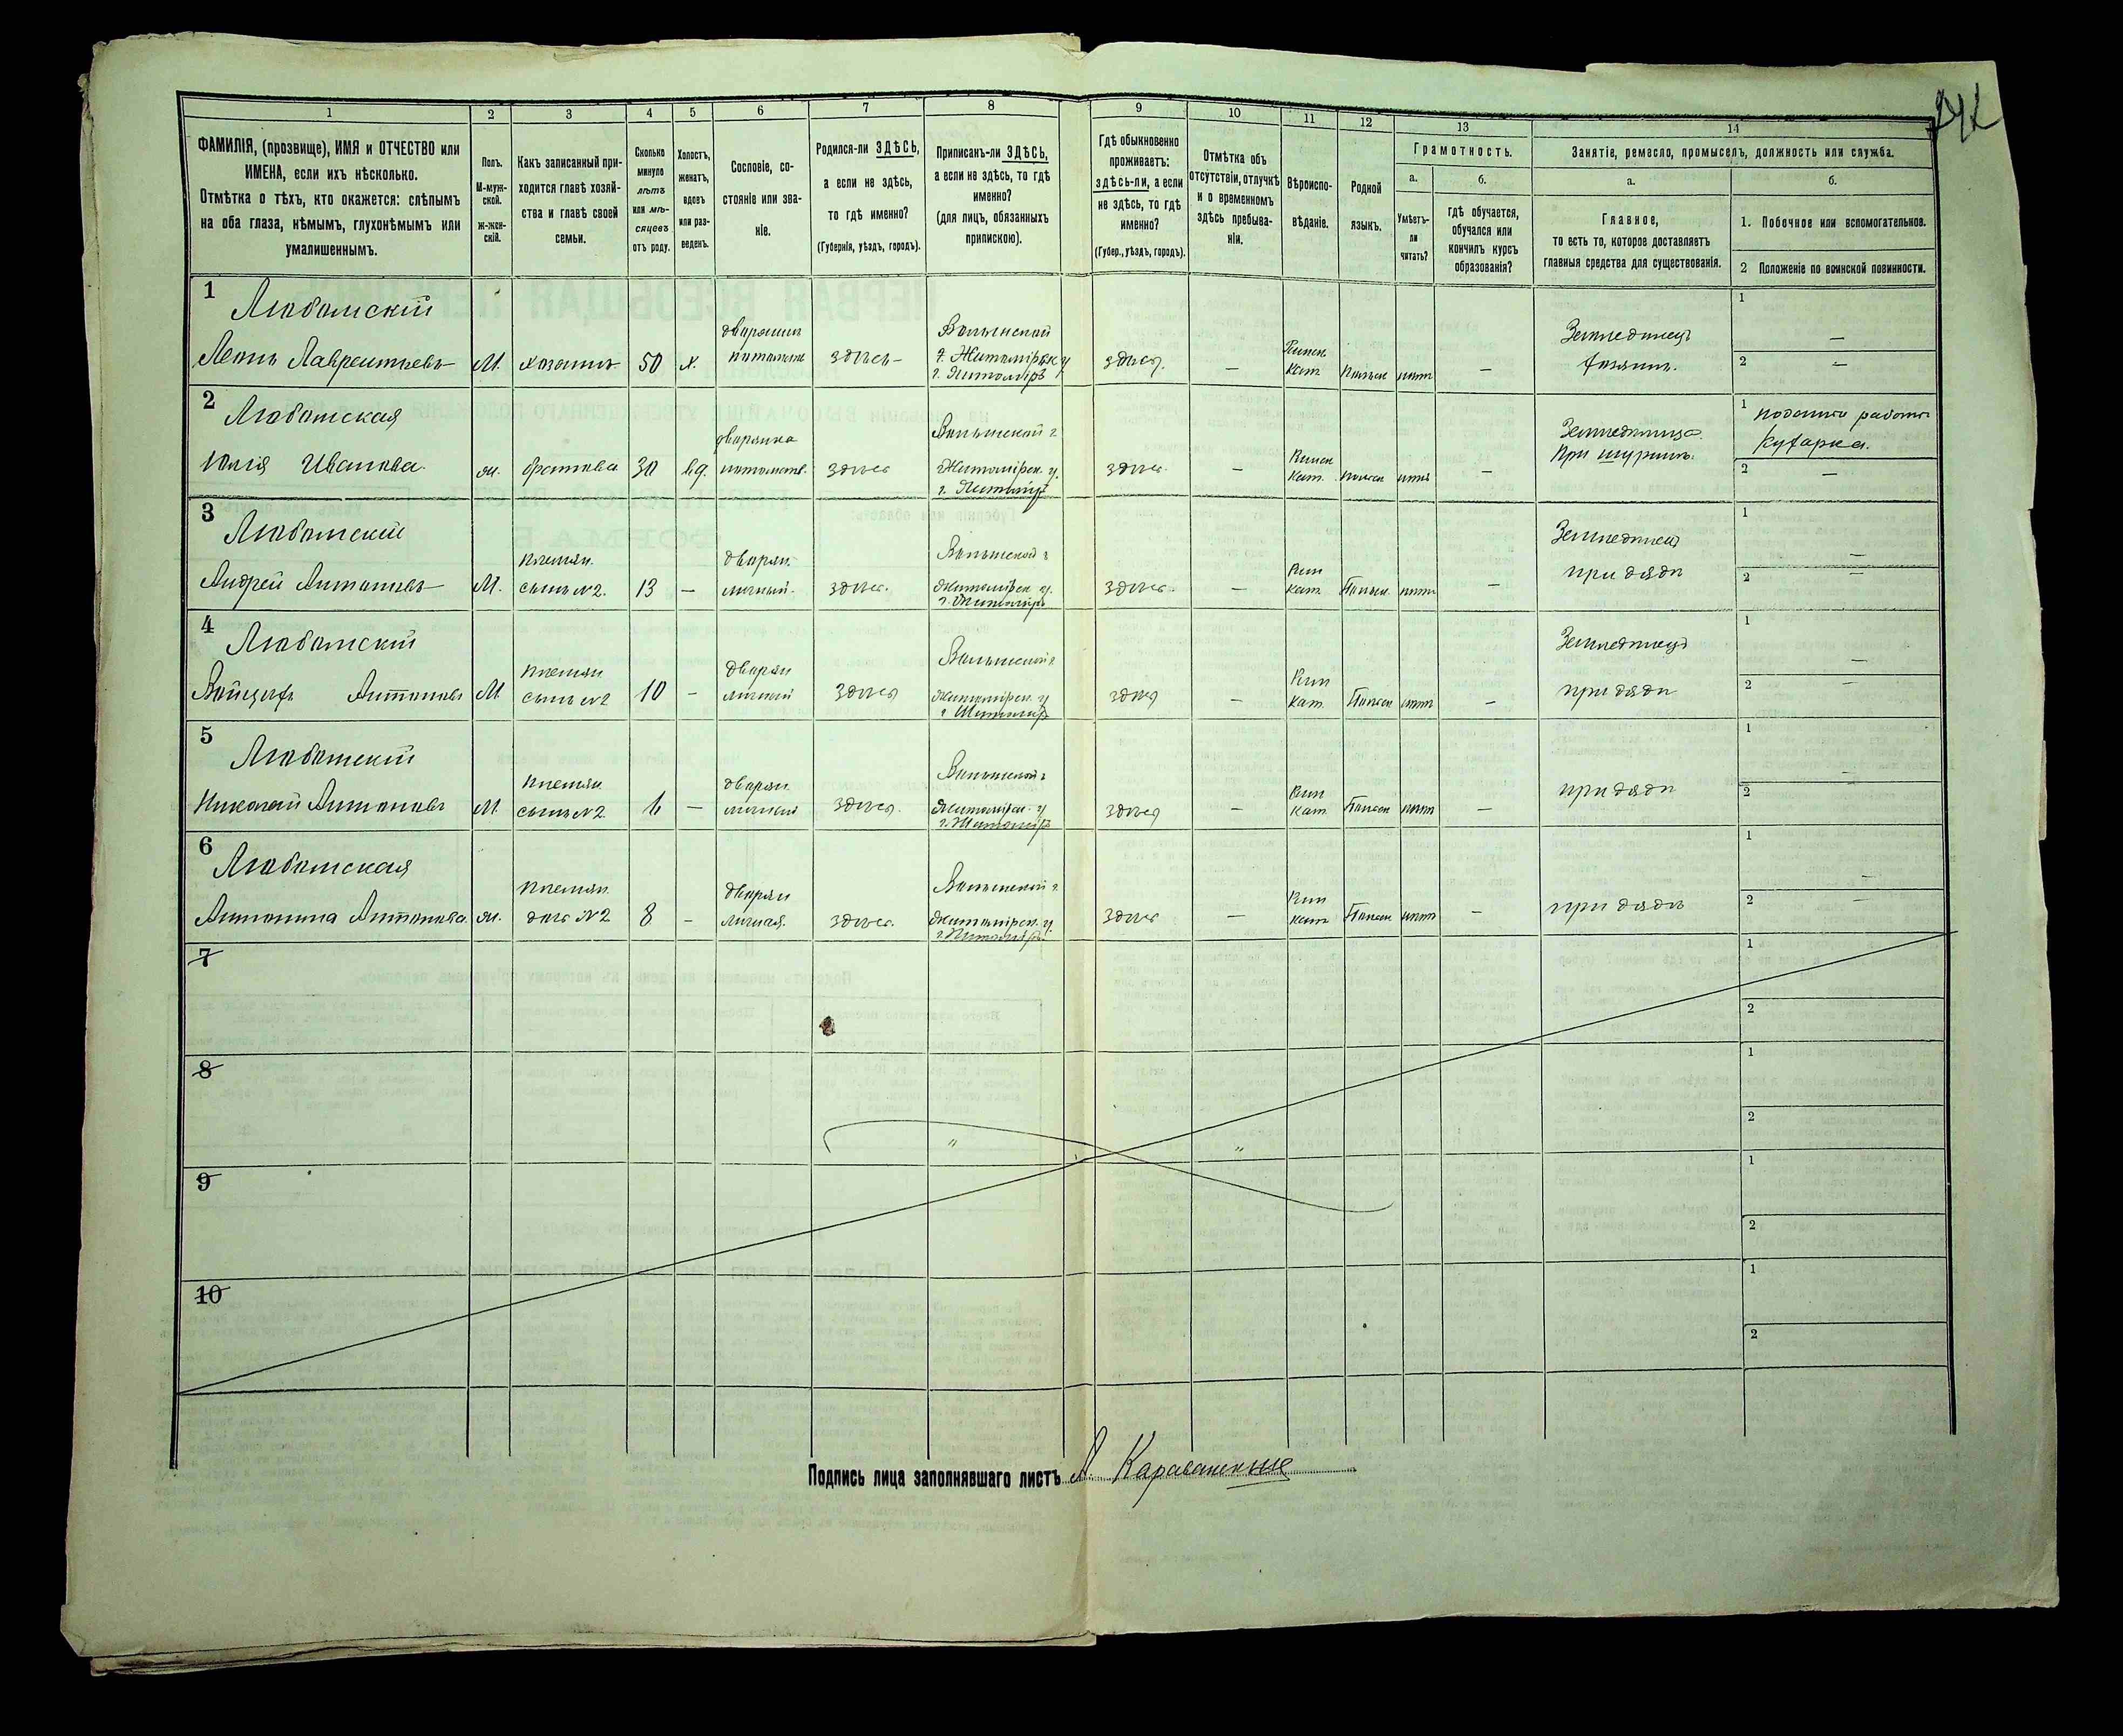 1 2 3 4 5 6 7 8 9 10 11 12 13 14
ФАМИЛІЯ, (прозвище), ИМЯ и ОТЧЕСТВО или
ИМЕНА, если ихъ нѣсколько.
Отмѣтка о тѣхъ, кто окажется: слѣпымъ
на оба глаза, нѣмымъ, глухонѣмымъ или
умалишеннымъ.
Полъ.
М-муж-
ской.
ж-жен-
скій.
Какъ записанный при-
ходится главѣ хозяй-
ства и главѣ своей
семьи.
Сколько
минуло
лѣтъ
или мѣ-
сяцевъ
отъ роду.
Холостъ,
женатъ,
вдовъ
или раз-
веденъ.
Сословіе, со-
стояніе или зва-
ніе.
Родился-ли ЗДѢСЬ,
а если не здѣсь,
то гдѣ именно?
(Губернія, уѣздъ, городъ).
Приписанъ-ли ЗДѢСЬ,
а если не здѣсь, то гдѣ
именно?
(для лицъ, обязанныхъ
припискою).
Гдѣ обыкновенно
проживаетъ:
здѣсь-ли, а если
не здѣсь, то гдѣ
именно?
(Губер., уѣздъ, городъ).
Отмѣтка объ
отсутствіи, отлучкѣ
и о временномъ
здѣсь пребыва-
ніи.
Вѣроиспо-
вѣданіе.
Родной
языкъ.
Грамотность.
а.
Умѣетъ-
ли
читать?
б.
гдѣ обучается,
обучался или
кончилъ курсъ
образованія?
Занятіе, ремесло, промыселъ, должность или служба.
а.
Главное,
то есть то, которое доставляетъ
главныя средства для существованія.
б.
1. Побочное или вспомогательное.
2 Положеніе по воинской повинности.
1
М. хозяинъ 50 х. дворянинъ здѣсь Волынской
Житомірск у
г. Житоміръ
здѣсь. — Римск
Кат Польск нѣтъ — Земледѣлецъ
хозяинъ.
1 —
2 —
2
Юлія Иванова ж. братова 30 вд. дворянка
потомств. здѣсь Волынской г
Житомірск. у.
г. Житоміръ
здѣсь — Римск
Кат. Польск нѣтъ —
1
кухарка.
2 —
3
Андрей Антоновъ М. племян.
сынъ №2. 13 — дворян.
личный. здѣсь. Волынской г
Житомірск у.
г. Житоміръ
здѣсь — Рим
Кат Польск нѣтъ — Земледѣлецъ
при дядѣ
1 —
2 —
4
Антоновъ М племян
сынъ №2 10 — дворян
личный здѣсь Волынской г
Житомірск. у
г Житоміръ
здѣсь — Рим
Кат. Польск нѣтъ — Земледѣлецъ
при дядѣ
1 —
2 —
5
Николай Антоновъ М. племян
сынъ №2 — дворян.
личный здѣсь. Волынской г
Житомірск. у
г. Житоміръ
здѣсь — Рим
Кат Польск нѣтъ — при дядѣ
1 —
2
6
Антонина Антонова ж. племян.
дочь №2 8 — дворян
личная. здѣсь. Волынской г.
Житомірск. у.
г. Житоміръ
здѣсь — Рим
Кат Польск нѣтъ — при дядѣ
1 —
2 —
7 1
2
8 1
2
9 1
2
10 1
2
Подпись лица заполнявшаго листъ